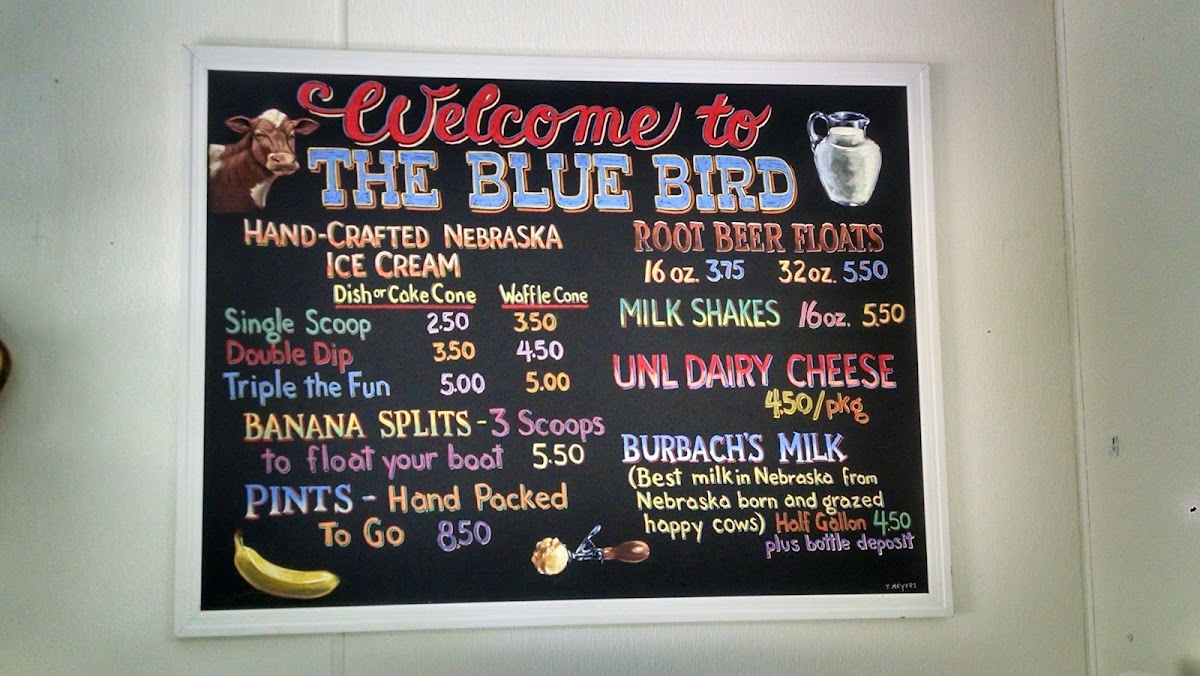 Welcome to
THE BLUE BIRD
HAND-CRAFTED NEBRASKA
ICE CREAM
Dish or Cake Cone Waffle Cone
Single Scoop 2.50 3.50
Double Dip 3.50 4.50
Triple the Fun 5.00 5.00
BANANA SPLITS - 3 Scoops
to float your boat 5.50
PINTS - Hand Packed
To Go 8.50
ROOT BEER FLOATS
16 oz. 3.75 32 oz. 5.50
MILK SHAKES 16 oz. 5.50
UNL DAIRY CHEESE
4.50/pkg
BURBACH'S MILK
(Best milk in Nebraska from
Nebraska born and grazed
happy cows) Half Gallon 4.50
plus bottle deposit
T. MEYERS